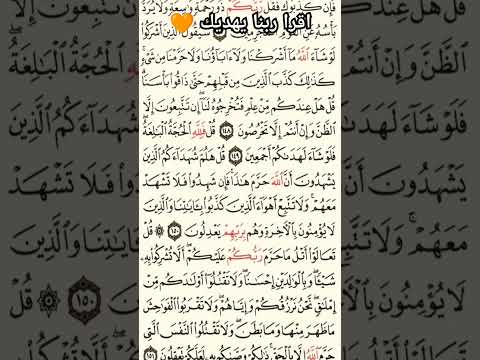 اقرا ربنا يهديك 🧡
فَإِن كَذَّبُوكَ فَقُل رَّبُّكُمْ ذُو رَحْمَةٍ وَٰسِعَةٍ وَلَا يُرَدُّ
بَأْسُهُۥ عَنِ ٱلْقَوْمِ ٱلْمُجْرِمِينَ ١٤٧ سَيَقُولُ ٱلَّذِينَ أَشْرَكُوا۟
لَوْ شَآءَ ٱللَّهُ مَآ أَشْرَكْنَا وَلَآ ءَابَآؤُنَا وَلَا حَرَّمْنَا مِن شَىْءٍ
كَذَٰلِكَ كَذَّبَ ٱلَّذِينَ مِن قَبْلِهِمْ حَتَّىٰ ذَاقُوا۟ بَأْسَنَا
قُلْ هَلْ عِندَكُم مِّنْ عِلْمٍ فَتُخْرِجُوهُ لَنَآ إِن تَتَّبِعُونَ إِلَّا
ٱلظَّنَّ وَإِنْ أَنتُمْ إِلَّا تَخْرُصُونَ ١٤٨ قُلْ فَلِلَّهِ ٱلْحُجَّةُ ٱلْبَٰلِغَةُ
فَلَوْ شَآءَ لَهَدَىٰكُمْ أَجْمَعِينَ ١٤٩ قُلْ هَلُمَّ شُهَدَآءَكُمُ ٱلَّذِينَ
يَشْهَدُونَ أَنَّ ٱللَّهَ حَرَّمَ هَٰذَا فَإِن شَهِدُوا۟ فَلَا تَشْهَدْ
مَعَهُمْ وَلَا تَتَّبِعْ أَهْوَآءَ ٱلَّذِينَ كَذَّبُوا۟ بِـَٔايَٰتِنَا وَٱلَّذِينَ
لَا يُؤْمِنُونَ بِٱلْـَٔاخِرَةِ وَهُم بِرَبِّهِمْ يَعْدِلُونَ ١٥٠ قُلْ
تَعَالَوْا۟ أَتْلُ مَا حَرَّمَ رَبُّكُمْ عَلَيْكُمْ أَلَّا تُشْرِكُوا۟ بِهِۦ
شَيْـًٔا وَبِٱلْوَٰلِدَيْنِ إِحْسَٰنًا وَلَا تَقْتُلُوٓا۟ أَوْلَٰدَكُم مِّنْ
إِمْلَٰقٍ نَّحْنُ نَرْزُقُكُمْ وَإِيَّاهُمْ وَلَا تَقْرَبُوا۟ ٱلْفَوَٰحِشَ
مَا ظَهَرَ مِنْهَا وَمَا بَطَنَ وَلَا تَقْتُلُوا۟ ٱلنَّفْسَ ٱلَّتِى
حَرَّمَ ٱللَّهُ إِلَّا بِٱلْحَقِّ ذَٰلِكُمْ وَصَّىٰكُم بِهِۦ لَعَلَّكُمْ تَعْقِلُونَ ١٥١